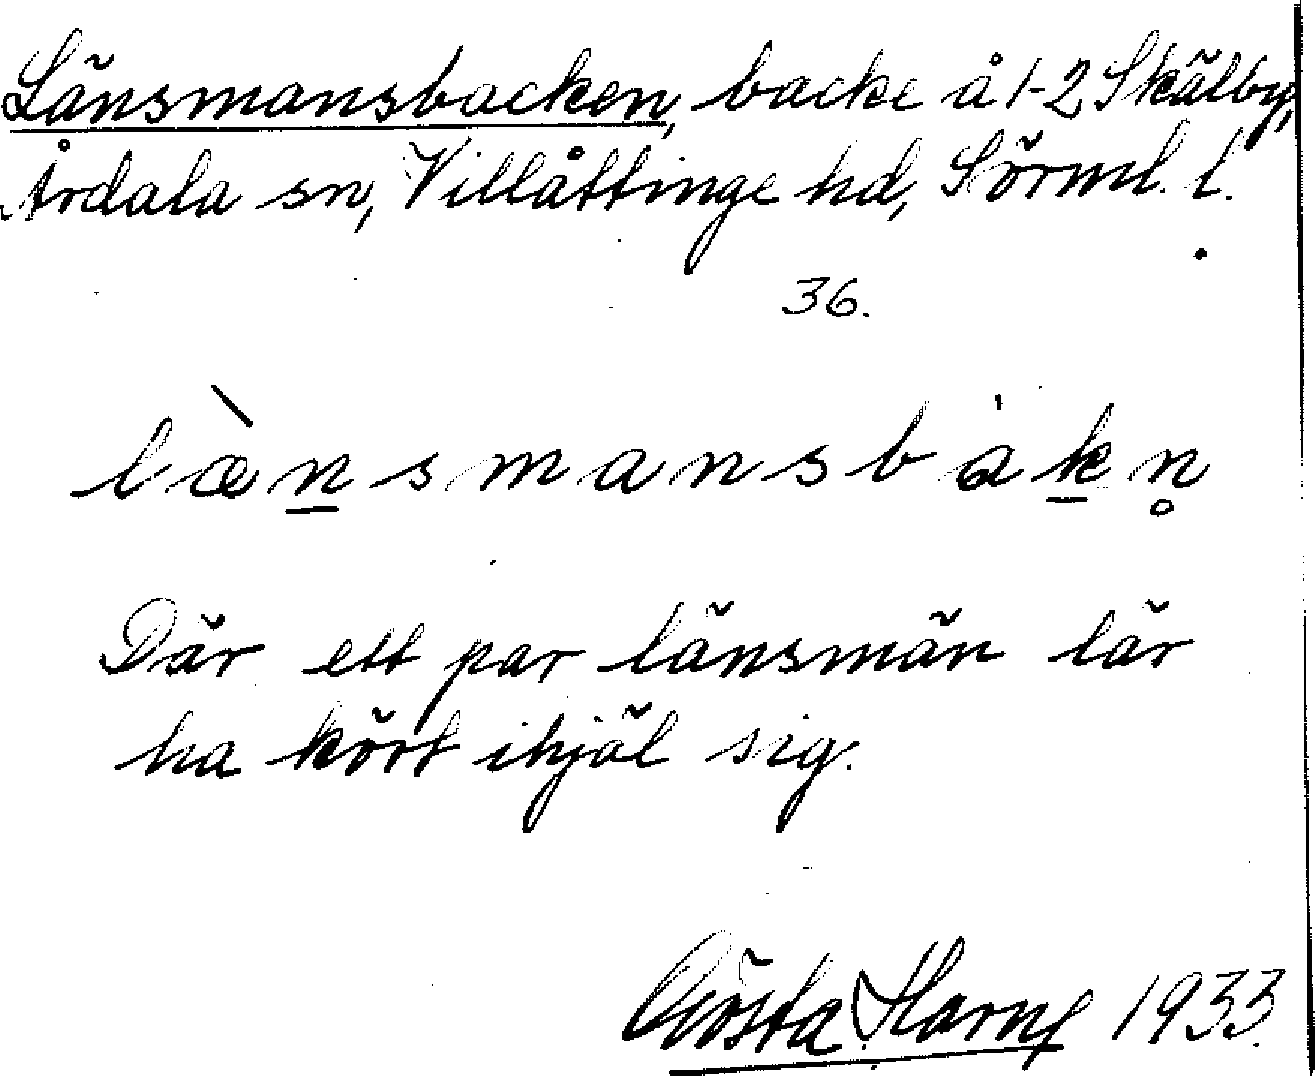 Länsmansbacken, backe å 1-2 Skälby,
Årdala sn, Villåttinge hd, Sörml. l.
36.
lænsmansbakn̥
Där ett par länsmän lär
ha kört ihjäl sig.
Gösta Harne 1933.